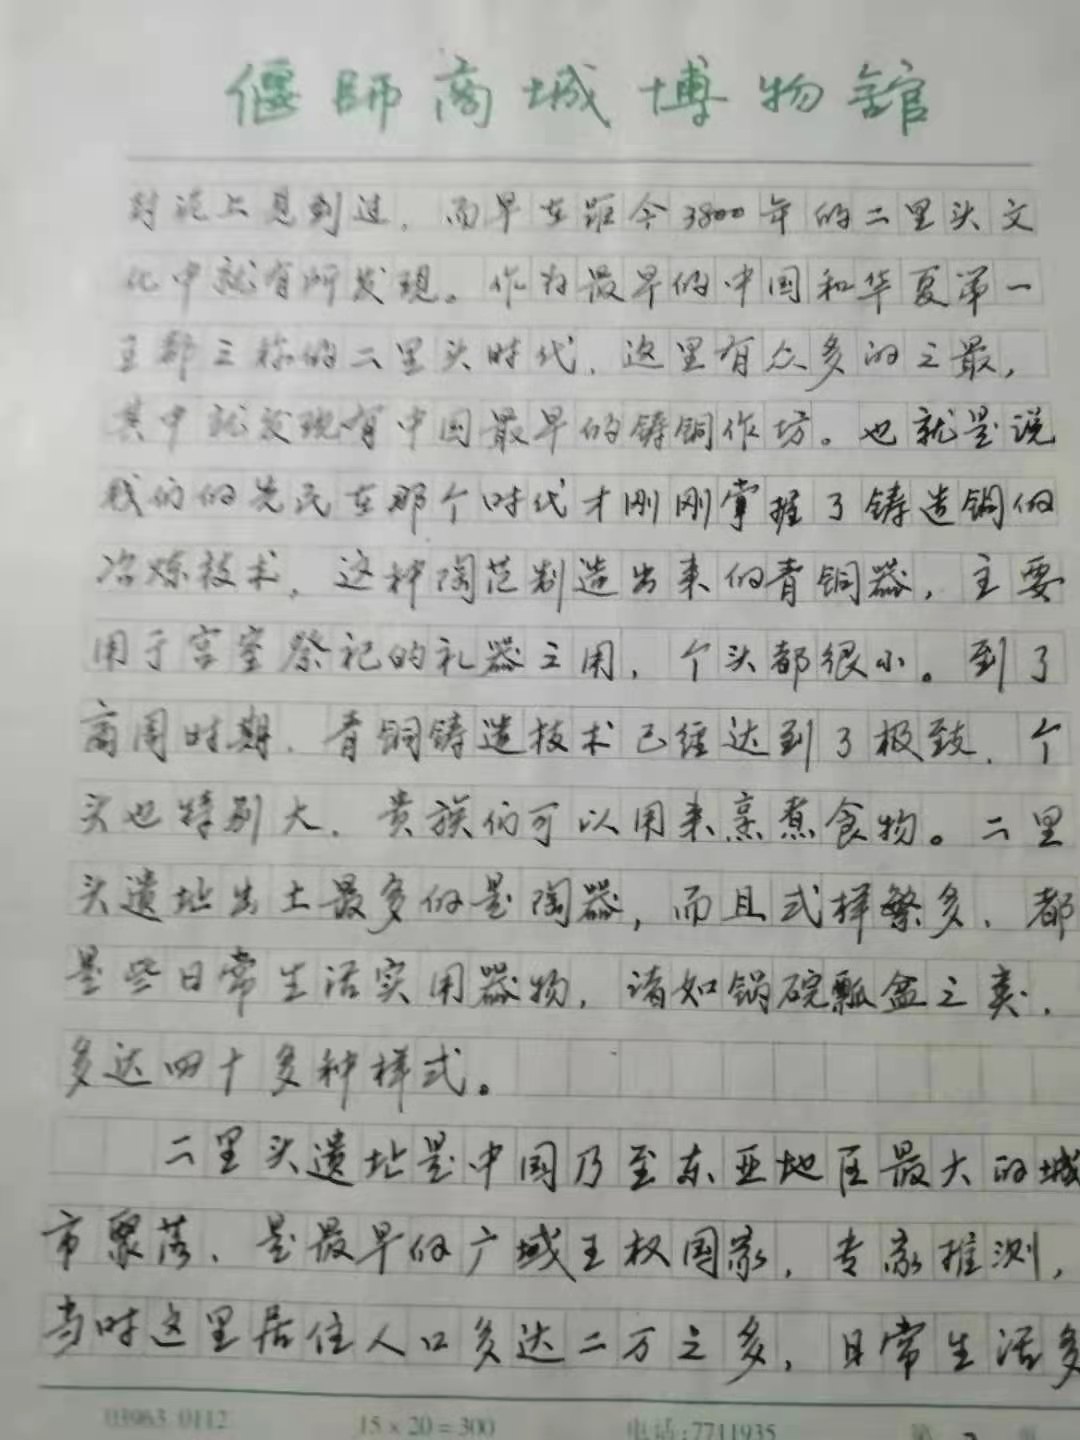 偃師商城博物館
封泥上见到过，而早在距今3800年的二里头文
化中就有所发现。作为最早的中国和华夏第一
王都之称的二里头时代，这里有众多的之最，
其中就发现有中国最早的铸铜作坊。也就是说
我们的先民在那个时代才刚刚掌握了铸造铜的
冶炼技术，这种陶范制造出来的青铜器，主要
用于宫室祭祀的礼器之用，个头都很小。到了
商周时期，青铜铸造技术已经达到了极致，个
头也特别大，贵族们可以用来烹煮食物。二里
头遗址出土最多的是陶器，而且式样繁多，都
是些日常生活实用器物，诸如锅碗瓢盆之类，
多达四十多种样式。
二里头遗址是中国乃至东亚地区最大的城
市聚落，是最早的广域王权国家，专家推测，
当时这里居住人口多达二万之多，日常生活多
03963 0112 15×20=300 电话:7711935 第 页